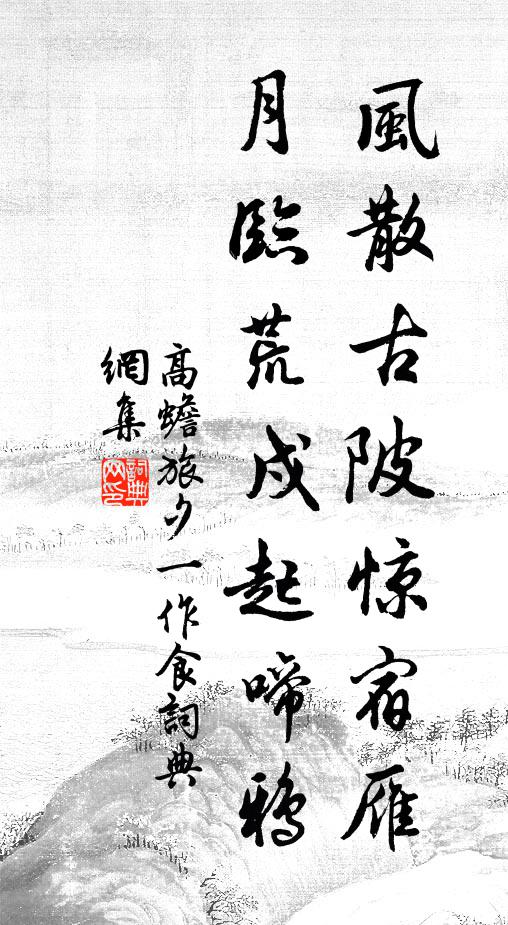 風散古陂惊宿雁
月臨荒戍起啼鴉
高蟾旅夕一作食詞典
網集
詞典网印